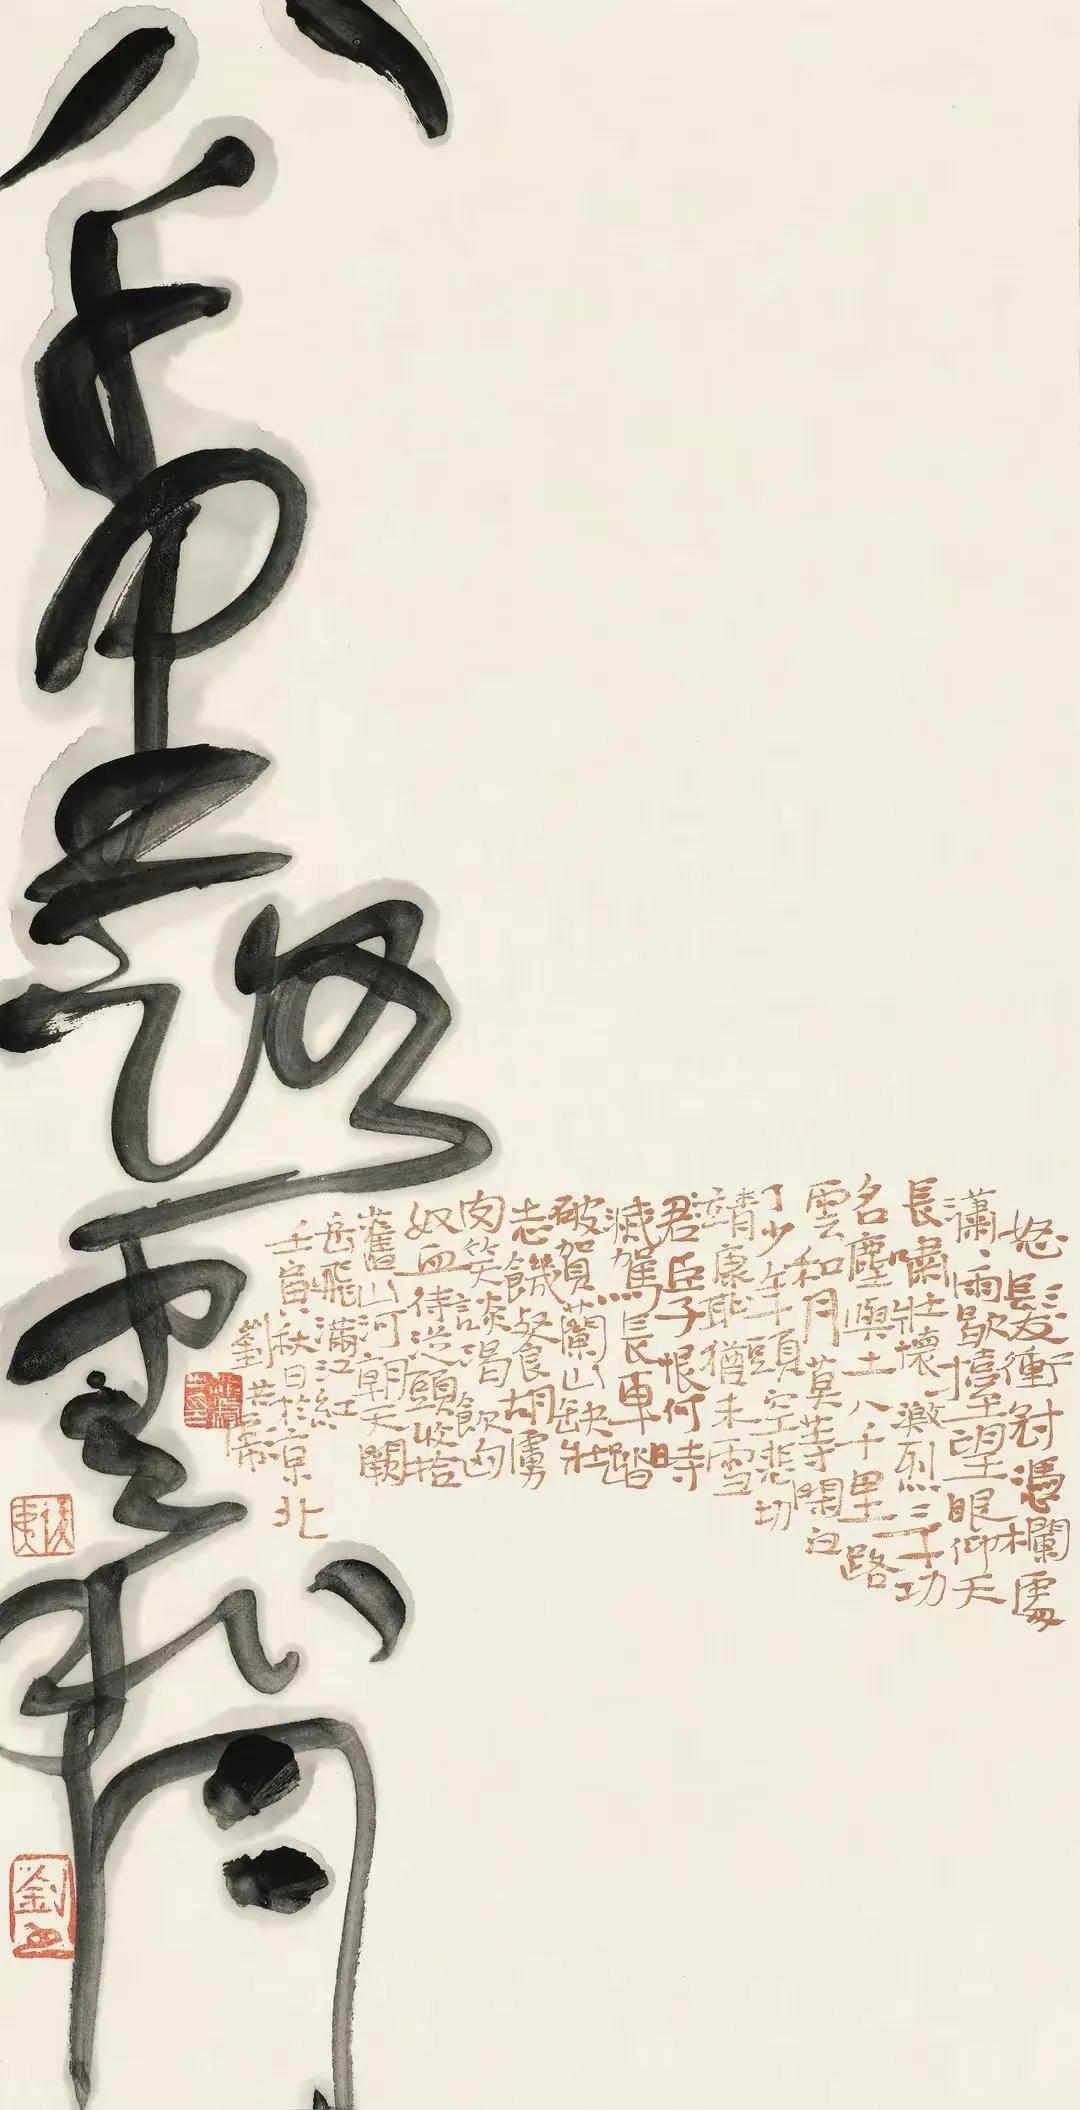 八千里路雲和月
怒髮衝冠憑欄處
瀟、雨歇擡望眼仰天
長嘯壯懷激烈三十功
名塵與土八千里路
雲和月莫等閑白
了少年頭空悲切
靖康耻猶未雪
君臣子恨何時
滅駕長車踏
破賀蘭山缺壯
志饑餐胡虜
肉笑談渴飲匈
奴血待從頭收拾
舊山河朝天闕
岳飛滿江紅
壬寅秋日於京北
劉